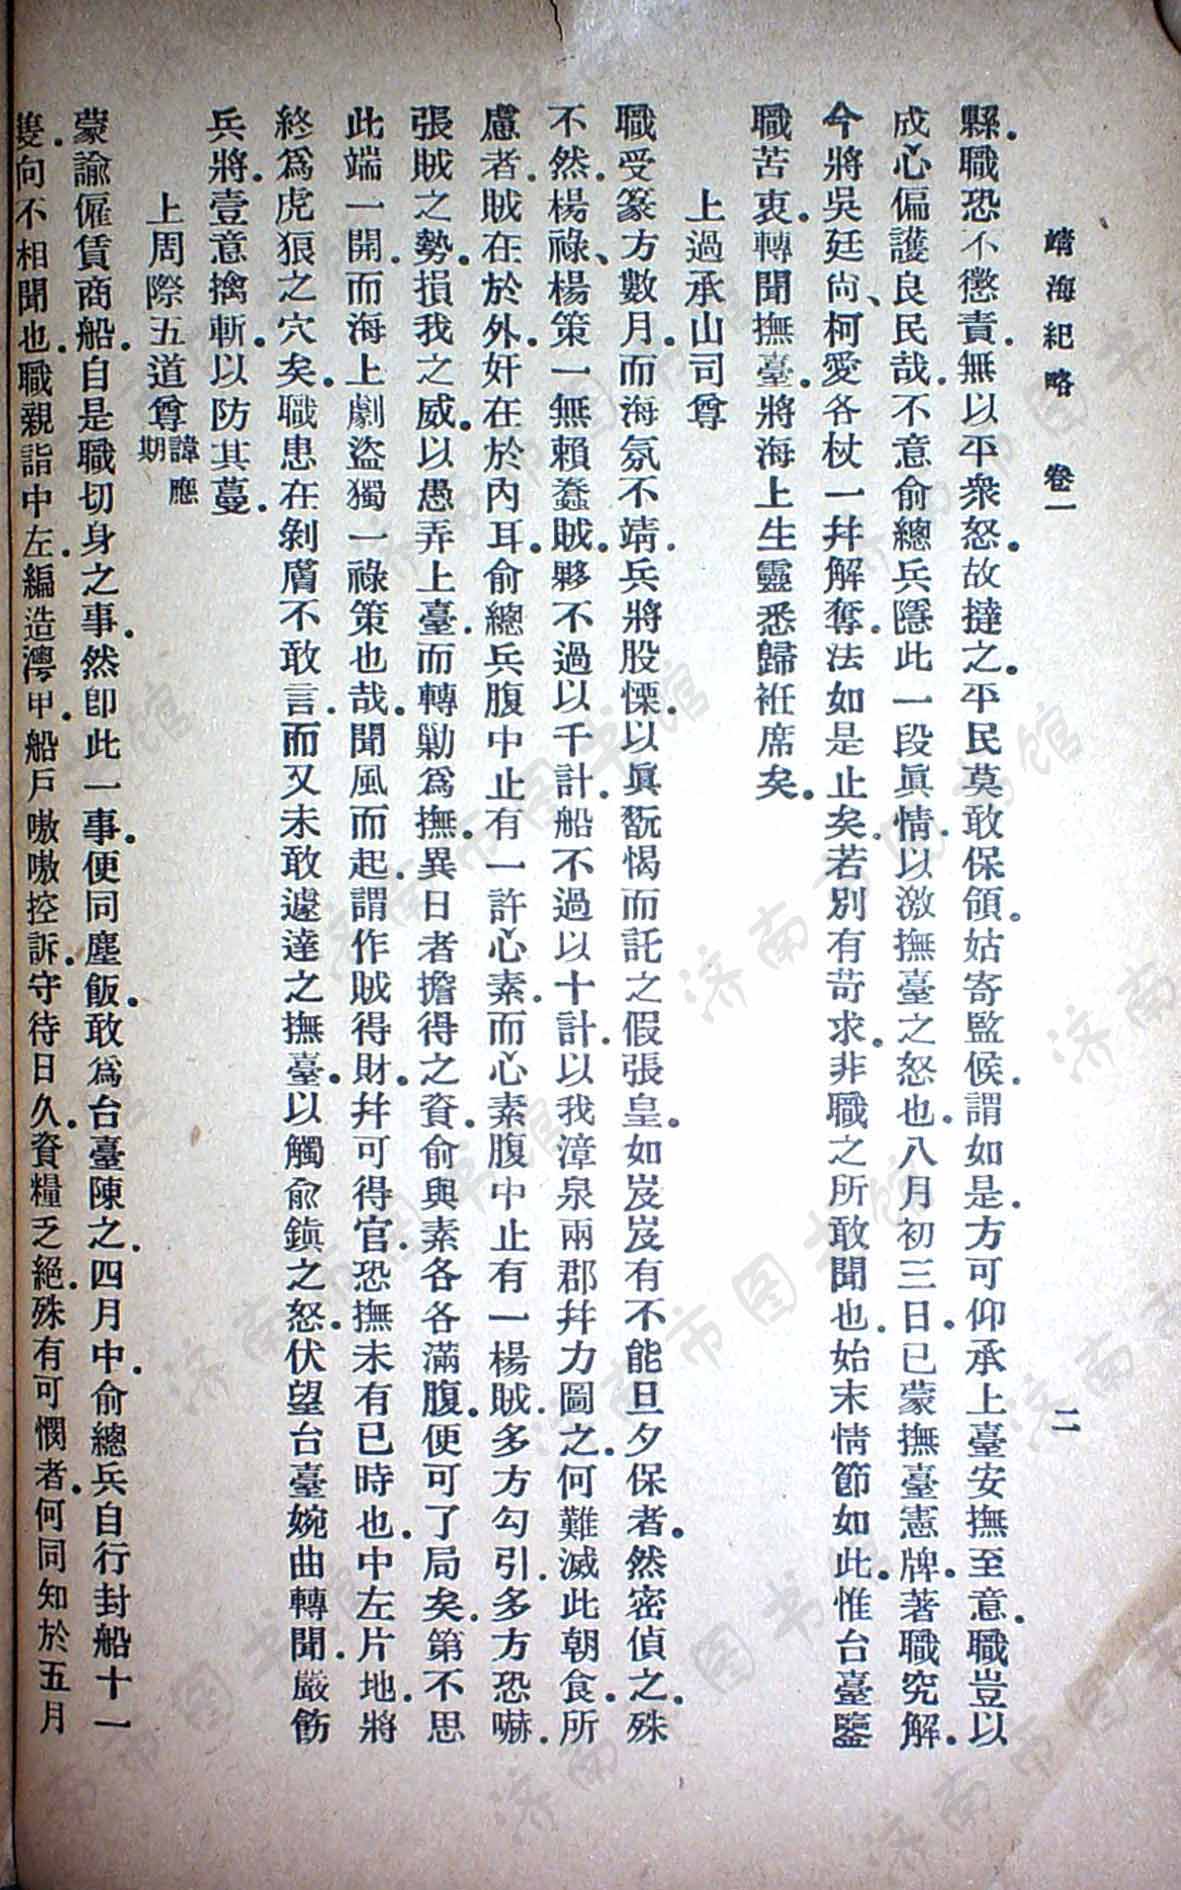 靖海紀略　卷一　二
縣。職恐不懲責。無以平衆怒。故撻之。平民莫敢保領。姑寄監候。謂如是。方可仰承上臺安撫至意。職豈以
成心偏護良民哉。不意俞總兵隱此一段眞情。以激撫臺之怒也。八月初三日。已蒙撫臺憲牌。著職究解。
今將吳廷尙、柯愛各杖一幷解奪。法如是止矣。若別有苛求。非職之所敢聞也。始末情節如此。惟台臺鑒
職苦衷。轉聞撫臺。將海上生靈悉歸衽席矣。
上過承山司尊
職受篆方數月。而海氛不靖。兵將股慄。以眞翫愒而託之假張皇。如岌岌有不能旦夕保者。然密偵之。殊
不然。楊祿、楊策一無賴蠢賊。夥不過以千計。船不過以十計。以我漳泉兩郡幷力圖之。何難滅此朝食。所
慮者。賊在於外。奸在於內耳。俞總兵腹中止有一許心素。而心素腹中止有一楊賊。多方勾引。多方恐嚇。
張賊之勢。損我之威。以愚弄上臺。而轉勦爲撫。異日者擔得之資。俞與素各各滿腹。便可了局矣。第不思
此端一開。而海上劇盜獨一祿策也哉。聞風而起。謂作賊得財。幷可得官。恐撫未有已時也。中左片地。將
終爲虎狼之穴矣。職患在剝膚不敢言。而又未敢遽達之撫臺。以觸俞鎭之怒。伏望台臺婉曲轉聞。嚴飭
兵將。壹意擒斬。以防其蔓。
上周際五道尊諱應期
蒙諭僱賃商船。自是職切身之事。然卽此一事。便同塵飯。敢爲台臺陳之。四月中。俞總兵自行封船十一
隻。向不相聞也。職親詣中左。編造澪甲。船戶嗷嗷控訴。守待日久。資糧乏絕。殊有可憫者。何同知於五月